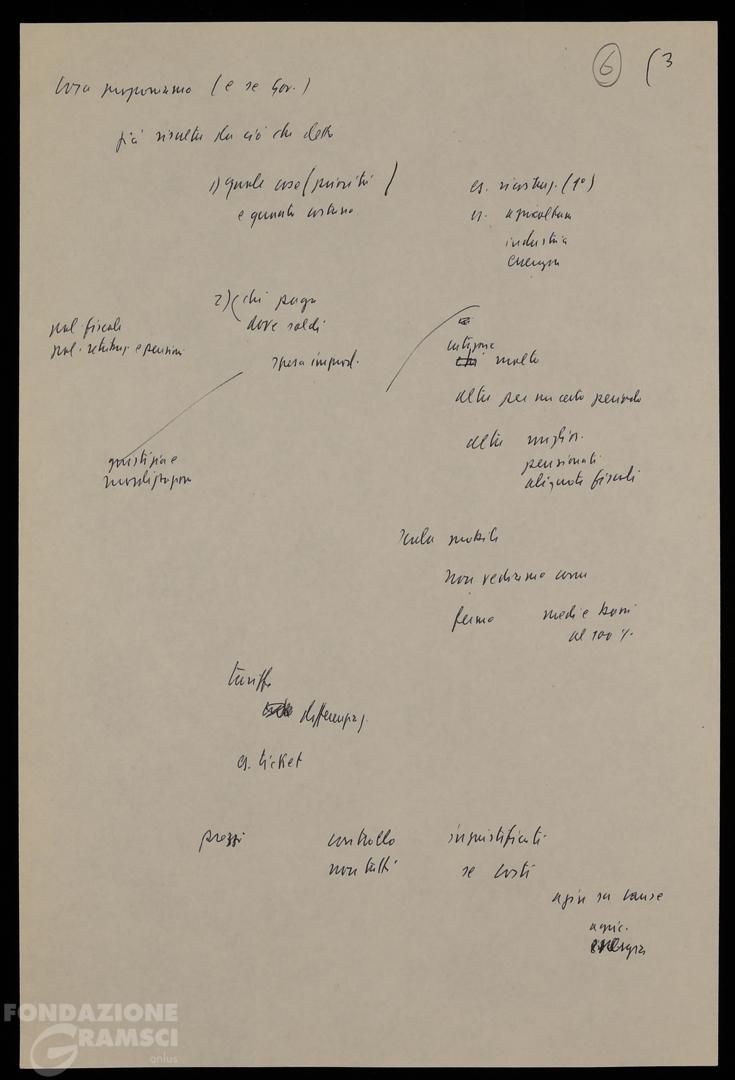 6 (3
Cosa proponiamo (e se Gov.)
già risulta da ciò che detto
1) quale cose (priorità)
e quanto costano
es. ricostruz. (1º)
es. agricoltura
industria
energia
2) (chi paga
dove soldi
pol. fiscale
pol. retribuz. e pensioni
spesa improd.
categorie
molto
altre per un certo periodo
altre miglior.
pensionati
aliquote fiscali
giustizia e
Scala mobile
non vediamo come
ferma medie bassi
al 100%
tariffe
differenziaz.
es. ticket
prezzi controllo ingiustificati
non tutti se costi
agire su cause
agric.
energia
FONDAZIONE
GRAMSCI
onlus